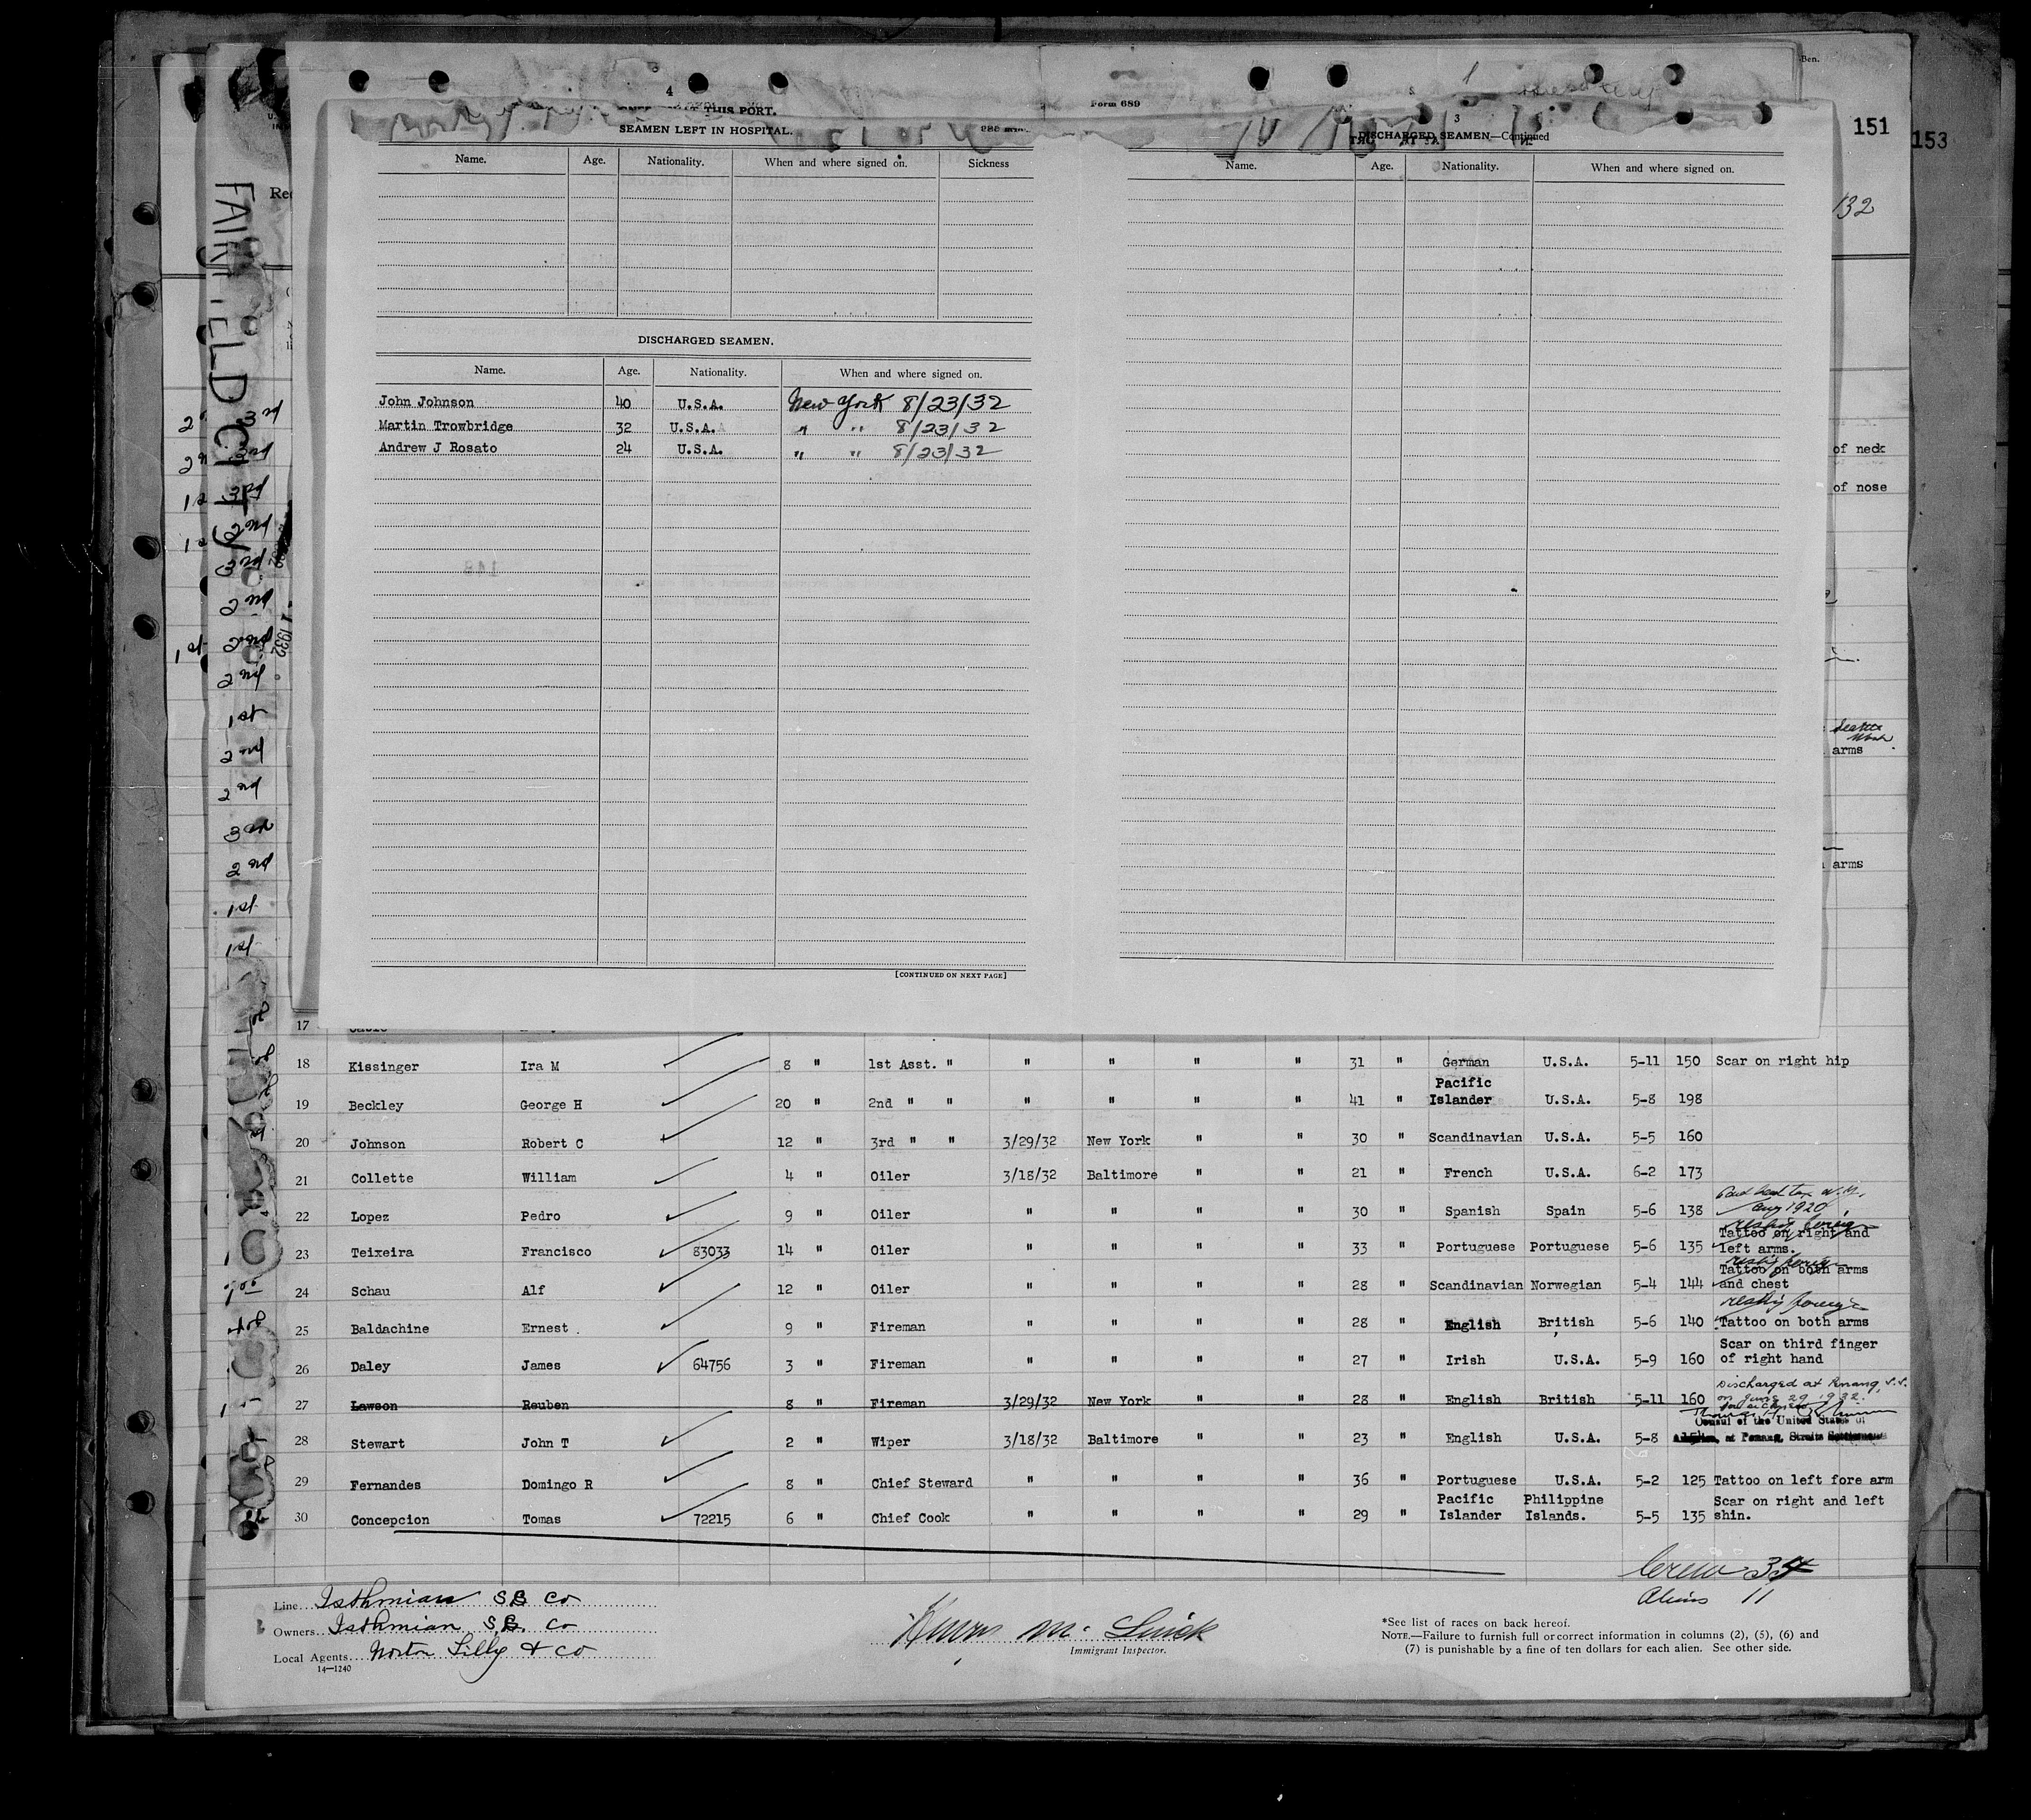 Ben.
151
153
132
FAIRFIELD CITY
4
THIS PORT.
SEAMEN LEFT IN HOSPITAL.
Name. Age. Nationality. When and where signed on. Sickness
DISCHARGED SEAMEN.
Name. Age. Nationality. When and where signed on.
John Johnson 40 U.S.A. New York 8/23/32
Martin Trowbridge 32 U.S.A. " " 8/23/32
Andrew J Rosato 24 U.S.A. " " 8/23/32
[CONTINUED ON NEXT PAGE]
Form 689
3
DISCHARGED SEAMEN—Continued
Name. Age. Nationality. When and where signed on.
of neck
of nose
Seattle
Wash
arms
arms
17
18 Kissinger Ira M 8 " 1st Asst. " " " " " 31 " German U.S.A. 5-11 150 Scar on right hip
19 Beckley George H 20 " 2nd " " " " " " 41 " Pacific Islander U.S.A. 5-8 198
20 Johnson Robert C 12 " 3rd " " 3/29/32 New York " " 30 " Scandinavian U.S.A. 5-5 160
21 Collette William 4 " Oiler 3/18/32 Baltimore " " 21 " French U.S.A. 6-2 173
22 Lopez Pedro 9 " Oiler " " " " 30 " Spanish Spain 5-6 138 Paid head tax N.Y. Aug 1920
23 Teixeira Francisco 83033 14 " Oiler " " " " 33 " Portuguese Portuguese 5-6 135 Tattoo on right and left arms.
24 Schau Alf 12 " Oiler " " " " 28 " Scandinavian Norwegian 5-4 144 Tattoo on both arms and chest
25 Baldachine Ernest. 9 " Fireman " " " " 28 " English British 5-6 140 Tattoo on both arms
26 Daley James 64756 3 " Fireman " " " " 27 " Irish U.S.A. 5-9 160 Scar on third finger of right hand
27 Lawson Reuben 8 " Fireman 3/29/32 New York " " 28 " English British 5-11 160 Discharged at Penang, S.S. on June 29 1932.
Consul of the United States of
28 Stewart John T 2 " Wiper 3/18/32 Baltimore " " 23 " English U.S.A. 5-8 at Penang, Straits Settlements
29 Fernandes Domingo R 8 " Chief Steward " " " " 36 " Portuguese U.S.A. 5-2 125 Tattoo on left fore arm
30 Concepcion Tomas 72215 6 " Chief Cook " " " " 29 " Pacific Islander Philippine Islands. 5-5 135 Scar on right and left shin.
Crew 34
Aliens 11
Line Isthmian S.S. Co
Owners Isthmian S.S. Co
Local Agents Norton Lilly & Co
14—1240
Immigrant Inspector.
*See list of races on back hereof.
NOTE.—Failure to furnish full or correct information in columns (2), (5), (6) and
(7) is punishable by a fine of ten dollars for each alien. See other side.